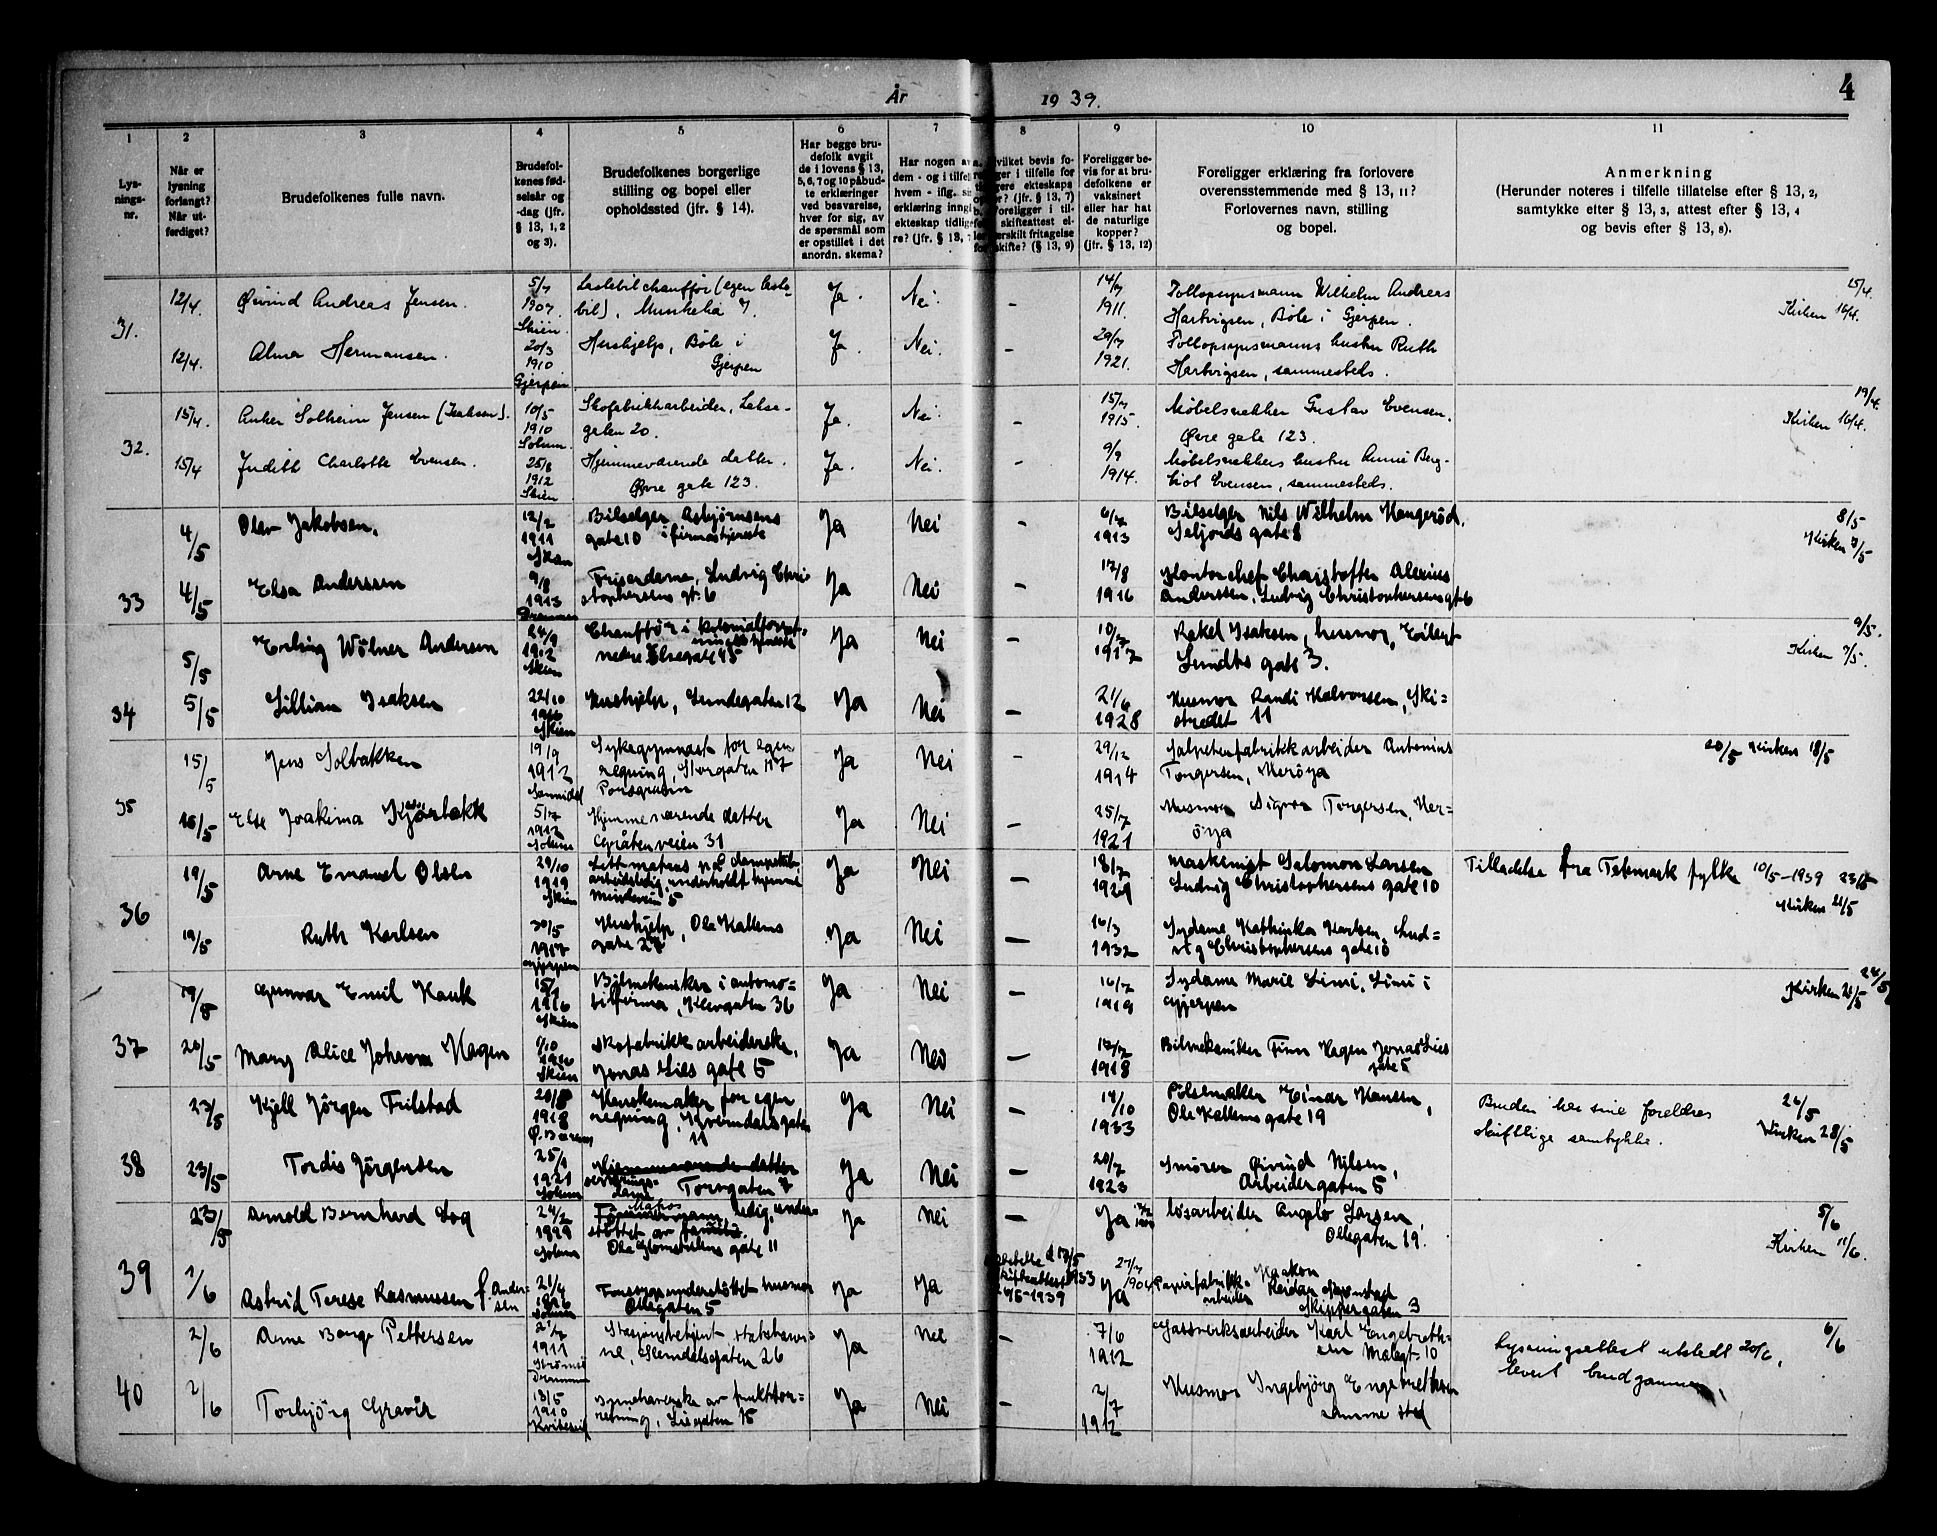 År 1939.
4
1 2 3 4 5 6 7 8 9 10 11
Lys-
nings-
nr.
Når er
lysning
forlangt?
Når ut-
ferdiget?
Brudefolkenes fulle navn.
Brudefol-
kenes fød-
selsår og
-dag (jfr.
§ 13, 1, 2
og 3).
Brudefolkenes borgerlige
stilling og bopel eller
opholdssted (jfr. § 14).
Har begge bru-
defolk avgit
de i lovens § 13,
5, 6, 7 og 10 påbud-
te erklæringer
ved besvarelse,
hver for sig, av
de spørsmål som
er opstillet i det
anordn. skema?
Har nogen av
dem - og i tilfelle
hvem - iflg. sin
erklæring inngått
ekteskap tidlige-
re? (jfr. § 13,
Foreligger be-
vis for at bru-
defolkene er
vaksinert
eller har hat
de naturlige
kopper?
(jfr. § 13, 12)
Foreligger erklæring fra forlovere
overensstemmende med § 13, 11?
Forlovernes navn, stilling
og bopel.
Anmerkning
(Herunder noteres i tilfelle tillatelse efter § 13, 2,
samtykke efter § 13, 3, attest efter § 13, 4
og bevis efter § 13, 8).
31.
12/4. Øivind Andreas Jensen. 5/7 1907 Skien. Lastebilchauffør (egen laste-
bil), Munkelia 7. Ja. Nei. – 14/7 1911. Tollopsynsmann Wilhelm Andreas
Hartvigsen, Bøle i Gjerpen. 15/4.
Kirken 16/4.
12/4. Alma Hermansen. 20/3 1910 Gjerpen. Hushjelp, Bøle i
Gjerpen Ja. Nei. – 29/7 1921. Tollopsynsmanns hustru Ruth
Hartvigsen, sammesteds.
32.
15/4. Anker Solheim Jensen (Isaksen). 10/5 1910 Solum. Skofabrikkarbeider, Lakse-
gaten 20. Ja. Nei. – 15/7 1915. Møbelsnekker Gustav Evensen,
Øvre gate 123. 19/4.
Kirken 16/4.
15/4 Judith Charlotte Evensen. 25/8 1912 Skien Hjemmeværende datter.
Øvre gate 123. Ja. Nei. – 9/9 1914. Møbelsnekkers hustru Anna Berg-
liot Evensen, sammesteds.
33
4/5 Olav Jakobsen. 12/2 1911 Bilselger Asbjørnsens
gate 10 i firmas tjeneste Ja Nei – 6/7 1913 Bilselger Nils Wilhelm Hengerød,
Seljords gate 8 8/5
Kirken 7/5
4/5 Elsa Anderssen 9/8 1913 Drammen Friserdame, Ludvig Chri-
stophersens gt. 6 Ja Nei – 17/8 1916 Kontorchef Christoffer Alexius
Anderssen, Ludvig Christophersens gt 6
34
5/5 Erling Wölner Andersen 24/9 1912 Skien Chauffør i kolonialforret-
nings tjeneste
nedre Elvegate 45 Ja Nei – 10/7 1917 Rakel Isaksen, husmor, Eilert
Sundts gate 3. 9/5.
Kirken 7/5.
5/5 Lillian Isaksen 22/10 1916 Skien Hushjelp, Lundegaten 12 Ja Nei – 21/6 1928 Husmor Randi Halvorsen, Ski-
stredet 11
35
15/5 Jens Solbakken 19/9 1912 Sannidal Sykegymnast for egen
regning, Storgaten 117
Porsgrunn Ja Nei – 29/12 1914 Salpeterfabrikkarbeider Antonius
Torgersen, Herøya 20/5 Kirken 18/5
15/5 Else Joakima Kjørbekk 5/7 1912 Solum Hjemmeværende datter
Gråtenveien 31 Ja Nei – 25/7 1921 Husmor Signe Torgersen, Her-
öya
36
19/5 Arne Emanuel Olsen 29/10 1919 Skien Lettmatros på dampskib
arbeidsledig, underholdt hjemme
Mindeveien 5 Ja Nei – 18/7 1929 Maskinist Salomon Larsen
Ludvig Christophersens gate 10 Tilladelse fra Telemark fylke 10/5–1939 23/5
Kirken 21/5
19/5 Ruth Karlsen 30/5 1917 Gjerpen Hushjelp, Ole Kallems
gate 27 Ja Nei – 16/3 1932 Sydame Kathinka Karlsen, Lud-
vig Christophersens gate 10
37
19/5 Gunvar Emil Hauk 15/ 1916 Skien Bilmekaniker i automo-
bilfirma, Klevgaten 36 Ja Nei – 16/7 1919 Sydame Marie Limi, Limi i
Gjerpen 24/5
Kirken 21/5
20/5 Mary Alice Johanne Hagen 1/10 1916 Skien Skofabrikkarbeiderske,
Jonas Lies gate 5 Ja Nei – 17/7 1918 Bilmekaniker Finn Hagen Jonas Lies
gate 5
38
23/5 Kjell Jörgen Frilstad 20/8 1918 Ø. Bærum Hanskemaker for egen
regning, Kverndalsgaten
11 Ja Nei – 14/10 1933 Pölsemaker Einar Hansen,
Ole Kallems gate 19 Bruden har sine foreldres
skriftlige samtykke. 26/5
Kirken 28/5
23/5 Tordis Jörgensen 25/1 1921 Solum Hjemmeværende datter
serverings-
dame Torvgaten 7 Ja Nei – 20/7 1923 Smører Eivind Nilsen,
Arbeidergaten 5
39
23/5 Arnold Bernhard Log 24/2 1909 Solum Matros ledig, under-
støttet av familie.
Ole Glomstulens gate 11 Ja Nei – Ja Løsarbeider Angelo Larsen
Ollegaten 19. 5/6
Kirken 11/6.
1/6 Astrid Terese Rasmussen f. Ander-
sen 21/4 1906 Solum Forsorgsunderstøttet husmor
Ollegaten 5 Ja Ja 27/7 1904 Ja Papirfabrikk-
arbeider Haakon
Reidar
Skippergaten 3
40
2/6 Arne Borge Pettersen 21/7 1911 Strømsø
Drammen Stasjonsbetjent statsbane-
ne, Slemdalsgaten 26 Ja Nei – 7/6 1912 Gassverksarbeider Karl Engebreth-
sen Møllegt. 10 Lysningsattest utstedt 20/6,
levert brudgommen. 6/6
2/6 Torbjörg Gravir 13/5 1910 Kviteseid Ja Nei – 2/7 1912 Husmor Ingebjörg Engebrethsen
samme sted